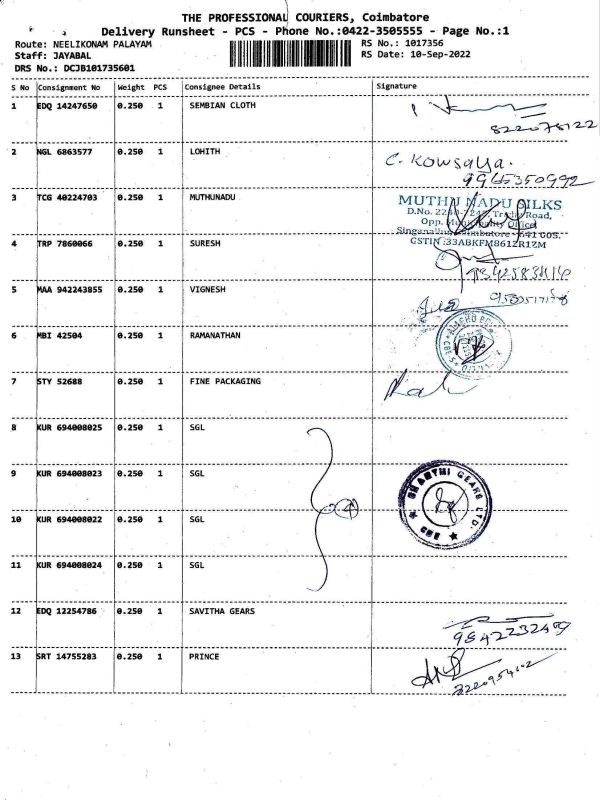 THE PROFESSIONAL COURIERS, Coimbatore
Delivery Runsheet - PCS - Phone No.:0422-3505555 - Page No.:1
Route: NEELIKONAM PALAYAM RS No.: 1017356
Staff: JAYABAL RS Date: 10-Sep-2022
DRS No.: DCJB101735601
S No Consignment No Weight PCS Consignee Details Signature
1 EDQ 14247650 0.250 1 SEMBIAN CLOTH
2 NGL 6863577 0.250 1 LOHITH C. Kowsalya.
9965350992
3 TCG 40224703 0.250 1 MUTHUNADU MUTHU NADU SILKS
D.No. Road,
Opp. Municipality Office
Singanallur, Coimbatore - 641 005.
GSTIN :33ABKFM8612R1ZM
4 TRP 7860066 0.250 1 SURESH
5 MAA 942243855 0.250 1 VIGNESH
6 MBI 42504 0.250 1 RAMANATHAN
7 STY 52688 0.250 1 FINE PACKAGING
8 KUR 694008025 0.250 1 SGL
9 KUR 694008023 0.250 1 SGL
SHANTHI GEARS LTD.
10 KUR 694008022 0.250 1 SGL 4
11 KUR 694008024 0.250 1 SGL
12 EDQ 12254786 0.250 1 SAVITHA GEARS
13 SRT 14755283 0.250 1 PRINCE